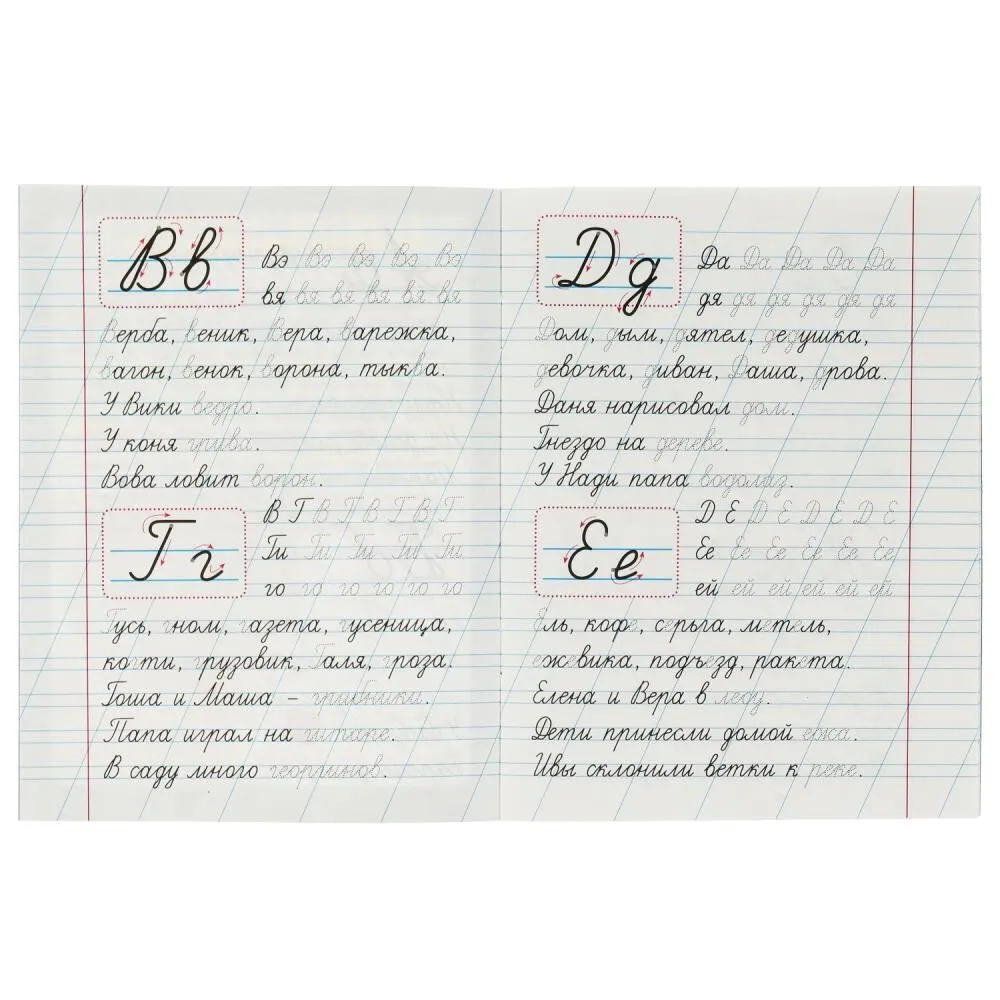 В в
Вэ Вэ Вэ Вэ Вэ
вя вя вя вя вя вя
Верба, веник, Вера, варежка,
вагон, венок, ворона, тыква.
У Вики ведро.
У коня грива.
Вова ловит ворон.
Г г
В Г В Г В Г В Г
Ги Ги Ги Ги Ги
го го го го го го
Гусь, гном, газета, гусеница,
когти, грузовик, Галя, гроза.
Гоша и Маша – грибники.
Папа играл на гитаре.
В саду много георгинов.
Д д
Да Да Да Да Да
дя дя дя дя дя дя
Дом, дым, дятел, дедушка,
девочка, диван, Даша, дрова.
Даня нарисовал дом.
Гнездо на дереве.
У Нади папа водолаз.
Е е
Д Е Д Е Д Е Д Е
Ее Ее Ее Ее Ее Ее
ей ей ей ей ей ей
Ель, кофе, серьга, метель,
ежевика, подъезд, ракета.
Елена и Вера в лесу.
Дети принесли домой ежа.
Ивы склонили ветки к реке.